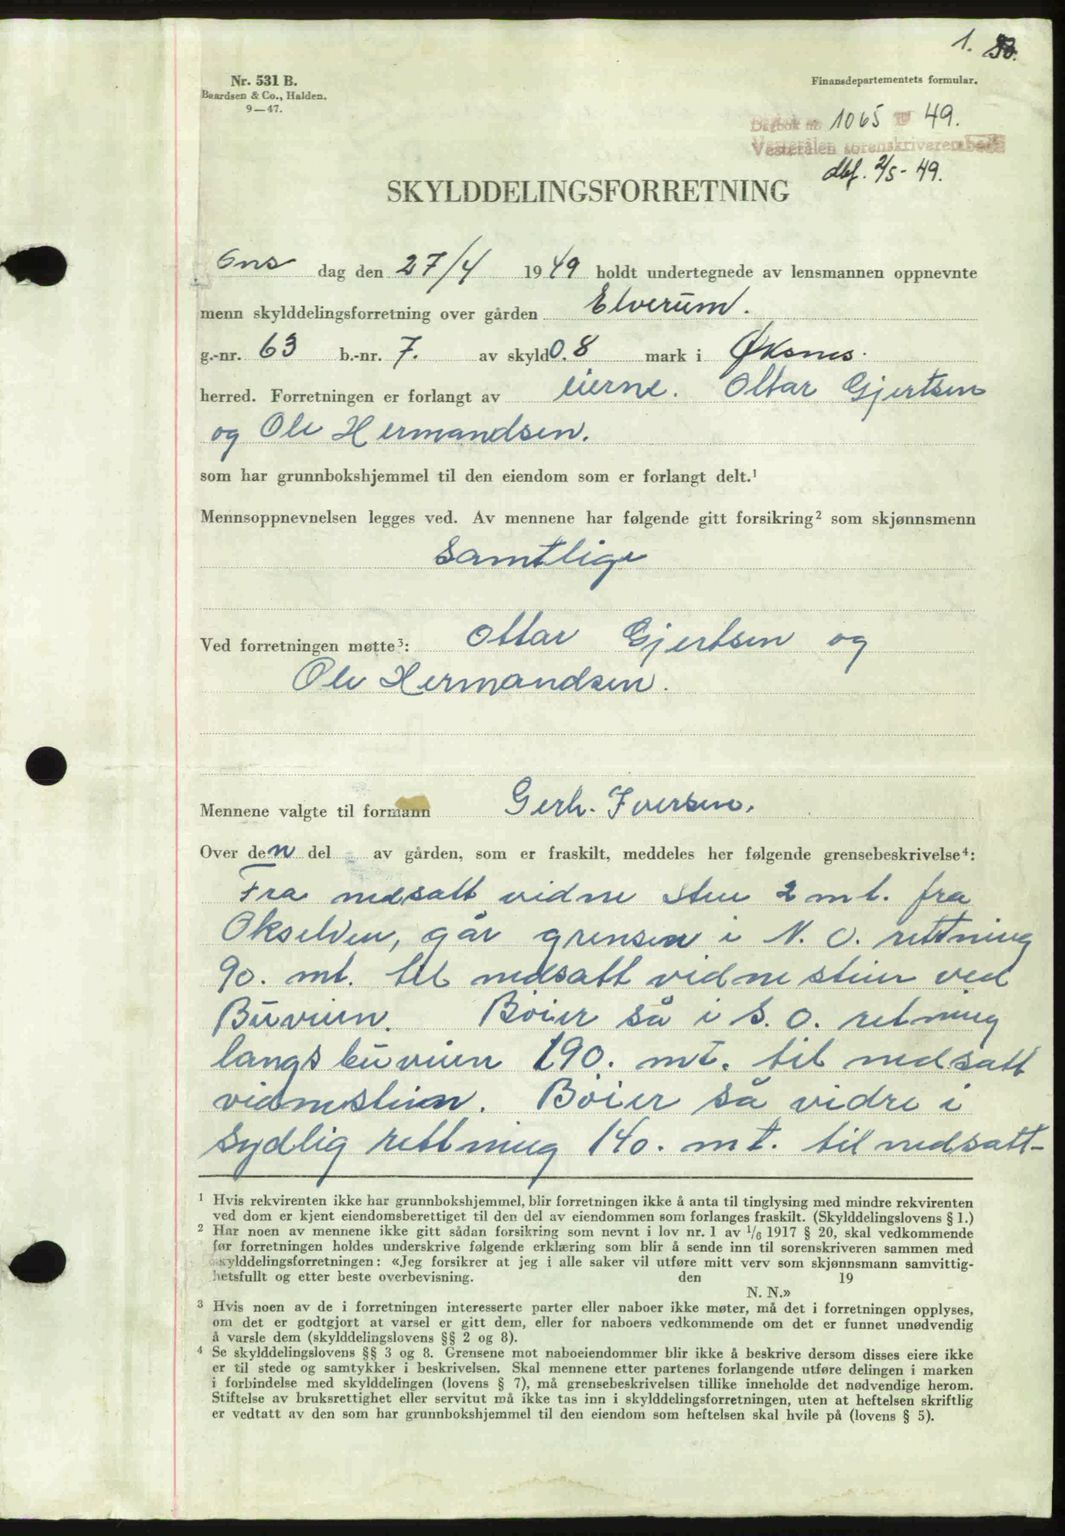 1.
Nr. 531 B.
Baardsen & Co., Halden.
9—47.
Finansdepartementets formular.
Dagbok nr. 1065 19 49.
Vesterålen sorenskriverembede
dbf. 2/5-49.
SKYLDDELINGSFORRETNING
Ons dag den 27/4 1949 holdt undertegnede av lensmannen oppnevnte
menn skylddelingsforretning over gården Elverum.
g.-nr. 63 b.-nr. 7. av skyld 0.8 mark i Øksnes.
herred. Forretningen er forlangt av eierne. Ottar Gjertsen
og Ole Hermandsen.
som har grunnbokshjemmel til den eiendom som er forlangt delt.¹
Mennsoppnevnelsen legges ved. Av mennene har følgende gitt forsikring² som skjønnsmenn
Samtlige
Ved forretningen møtte³: Ottar Gjertsen og
Ole Hermandsen.
Mennene valgte til formann Gerh. Iversen.
Over den del av gården, som er fraskilt, meddeles her følgende grensebeskrivelse⁴:
Fra nedsatt vidne sten 2 mt. fra
Okselven, går grensen i N. O. rettning
90. mt. til nedsatt vidne stein ved
Büveien. Böier så i S. O. retning
langs büveien 190. mt. til nedsatt
vidnestein. Böier så vidre i
Sydlig rettning 140. mt. til nedsatt-
¹ Hvis rekvirenten ikke har grunnbokshjemmel, blir forretningen ikke å anta til tinglysing med mindre rekvirenten
ved dom er kjent eiendomsberettiget til den del av eiendommen som forlanges fraskilt. (Skylddelingslovens § 1.)
² Har noen av mennene ikke gitt sådan forsikring som nevnt i lov nr. 1 av 1/6 1917 § 20, skal vedkommende
før forretningen holdes underskrive følgende erklæring som blir å sende inn til sorenskriveren sammen med
skylddelingsforretningen: «Jeg forsikrer at jeg i alle saker vil utføre mitt verv som skjønnsmann samvittig-
hetsfullt og etter beste overbevisning. den 19
N. N.»
³ Hvis noen av de i forretningen interesserte parter eller naboer ikke møter, må det i forretningen opplyses,
om det er godtgjort at varsel er gitt dem, eller for naboers vedkommende om det er funnet unødvendig
å varsle dem (skylddelingslovens §§ 2 og 8).
⁴ Se skylddelingslovens §§ 3 og 8. Grensene mot naboeiendommer blir ikke å beskrive dersom disses eiere ikke
er til stede og samtykker i beskrivelsen. Skal mennene etter partenes forlangende utføre delingen i marken
i forbindelse med skylddelingen (lovens § 7), må grensebeskrivelsen tillike inneholde det nødvendige herom.
Stiftelse av bruksrettighet eller servitut må ikke tas inn i skylddelingsforretningen, uten at heftelsen skriftlig
er vedtatt av den som har grunnbokshjemmel til den eiendom som heftelsen skal hvile på (lovens § 5).